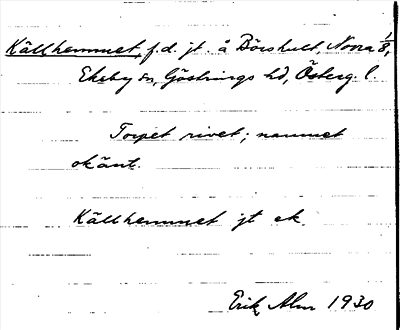 Källhemmet, f.d. jt. å Börshult, Norra 1/8,
Ekeby sn, Göstrings hd, Österg. l.
Torpet rivet; namnet
okänt.
Källhemmet jt ek.
Erik Alm 1930